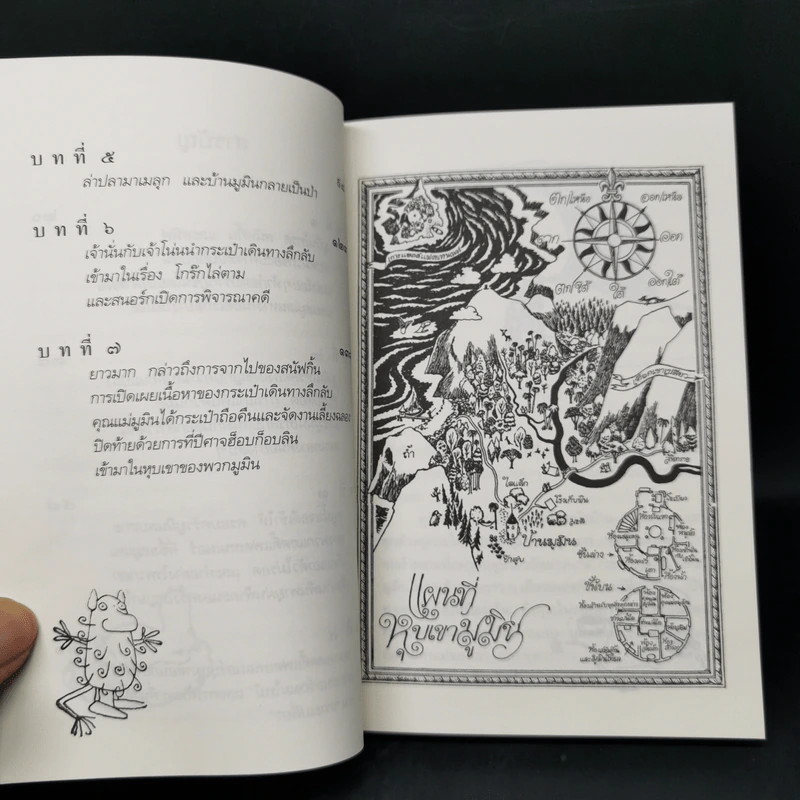 บทที่ ๕
ล่าปลามาเมลุก และบ้านมูมินกลายเป็นป่า
บทที่ ๖
เจ้านั่นกับเจ้าโน่นนำกระเป๋าเดินทางลึกลับ
เข้ามาในเรื่อง โกร๊กไล่ตาม
และสนอร์กเปิดการพิจารณาคดี
บทที่ ๗
ยาวมาก กล่าวถึงการจากไปของสนัฟกิ้น
การเปิดเผยเนื้อหาของกระเป๋าเดินทางลึกลับ
คุณแม่มูมินได้กระเป๋าถือคืนและจัดงานเลี้ยงฉลอง
ปิดท้ายด้วยการที่ปีศาจฮ็อบก็อบลิน
เข้ามาในหุบเขาของพวกมูมิน
ตก/เหนือ
ออก/เหนือ
ตก
ออก
ตก/ใต้
ใต้
ออก/ใต้
ถ้ำ
ไลแล็ก
โรงเก็บฟืน
บ้านมูมิน
ชั้นล่าง
ชั้นบน
ห้องน้ำ
แผนที่
หุบเขามูมิน